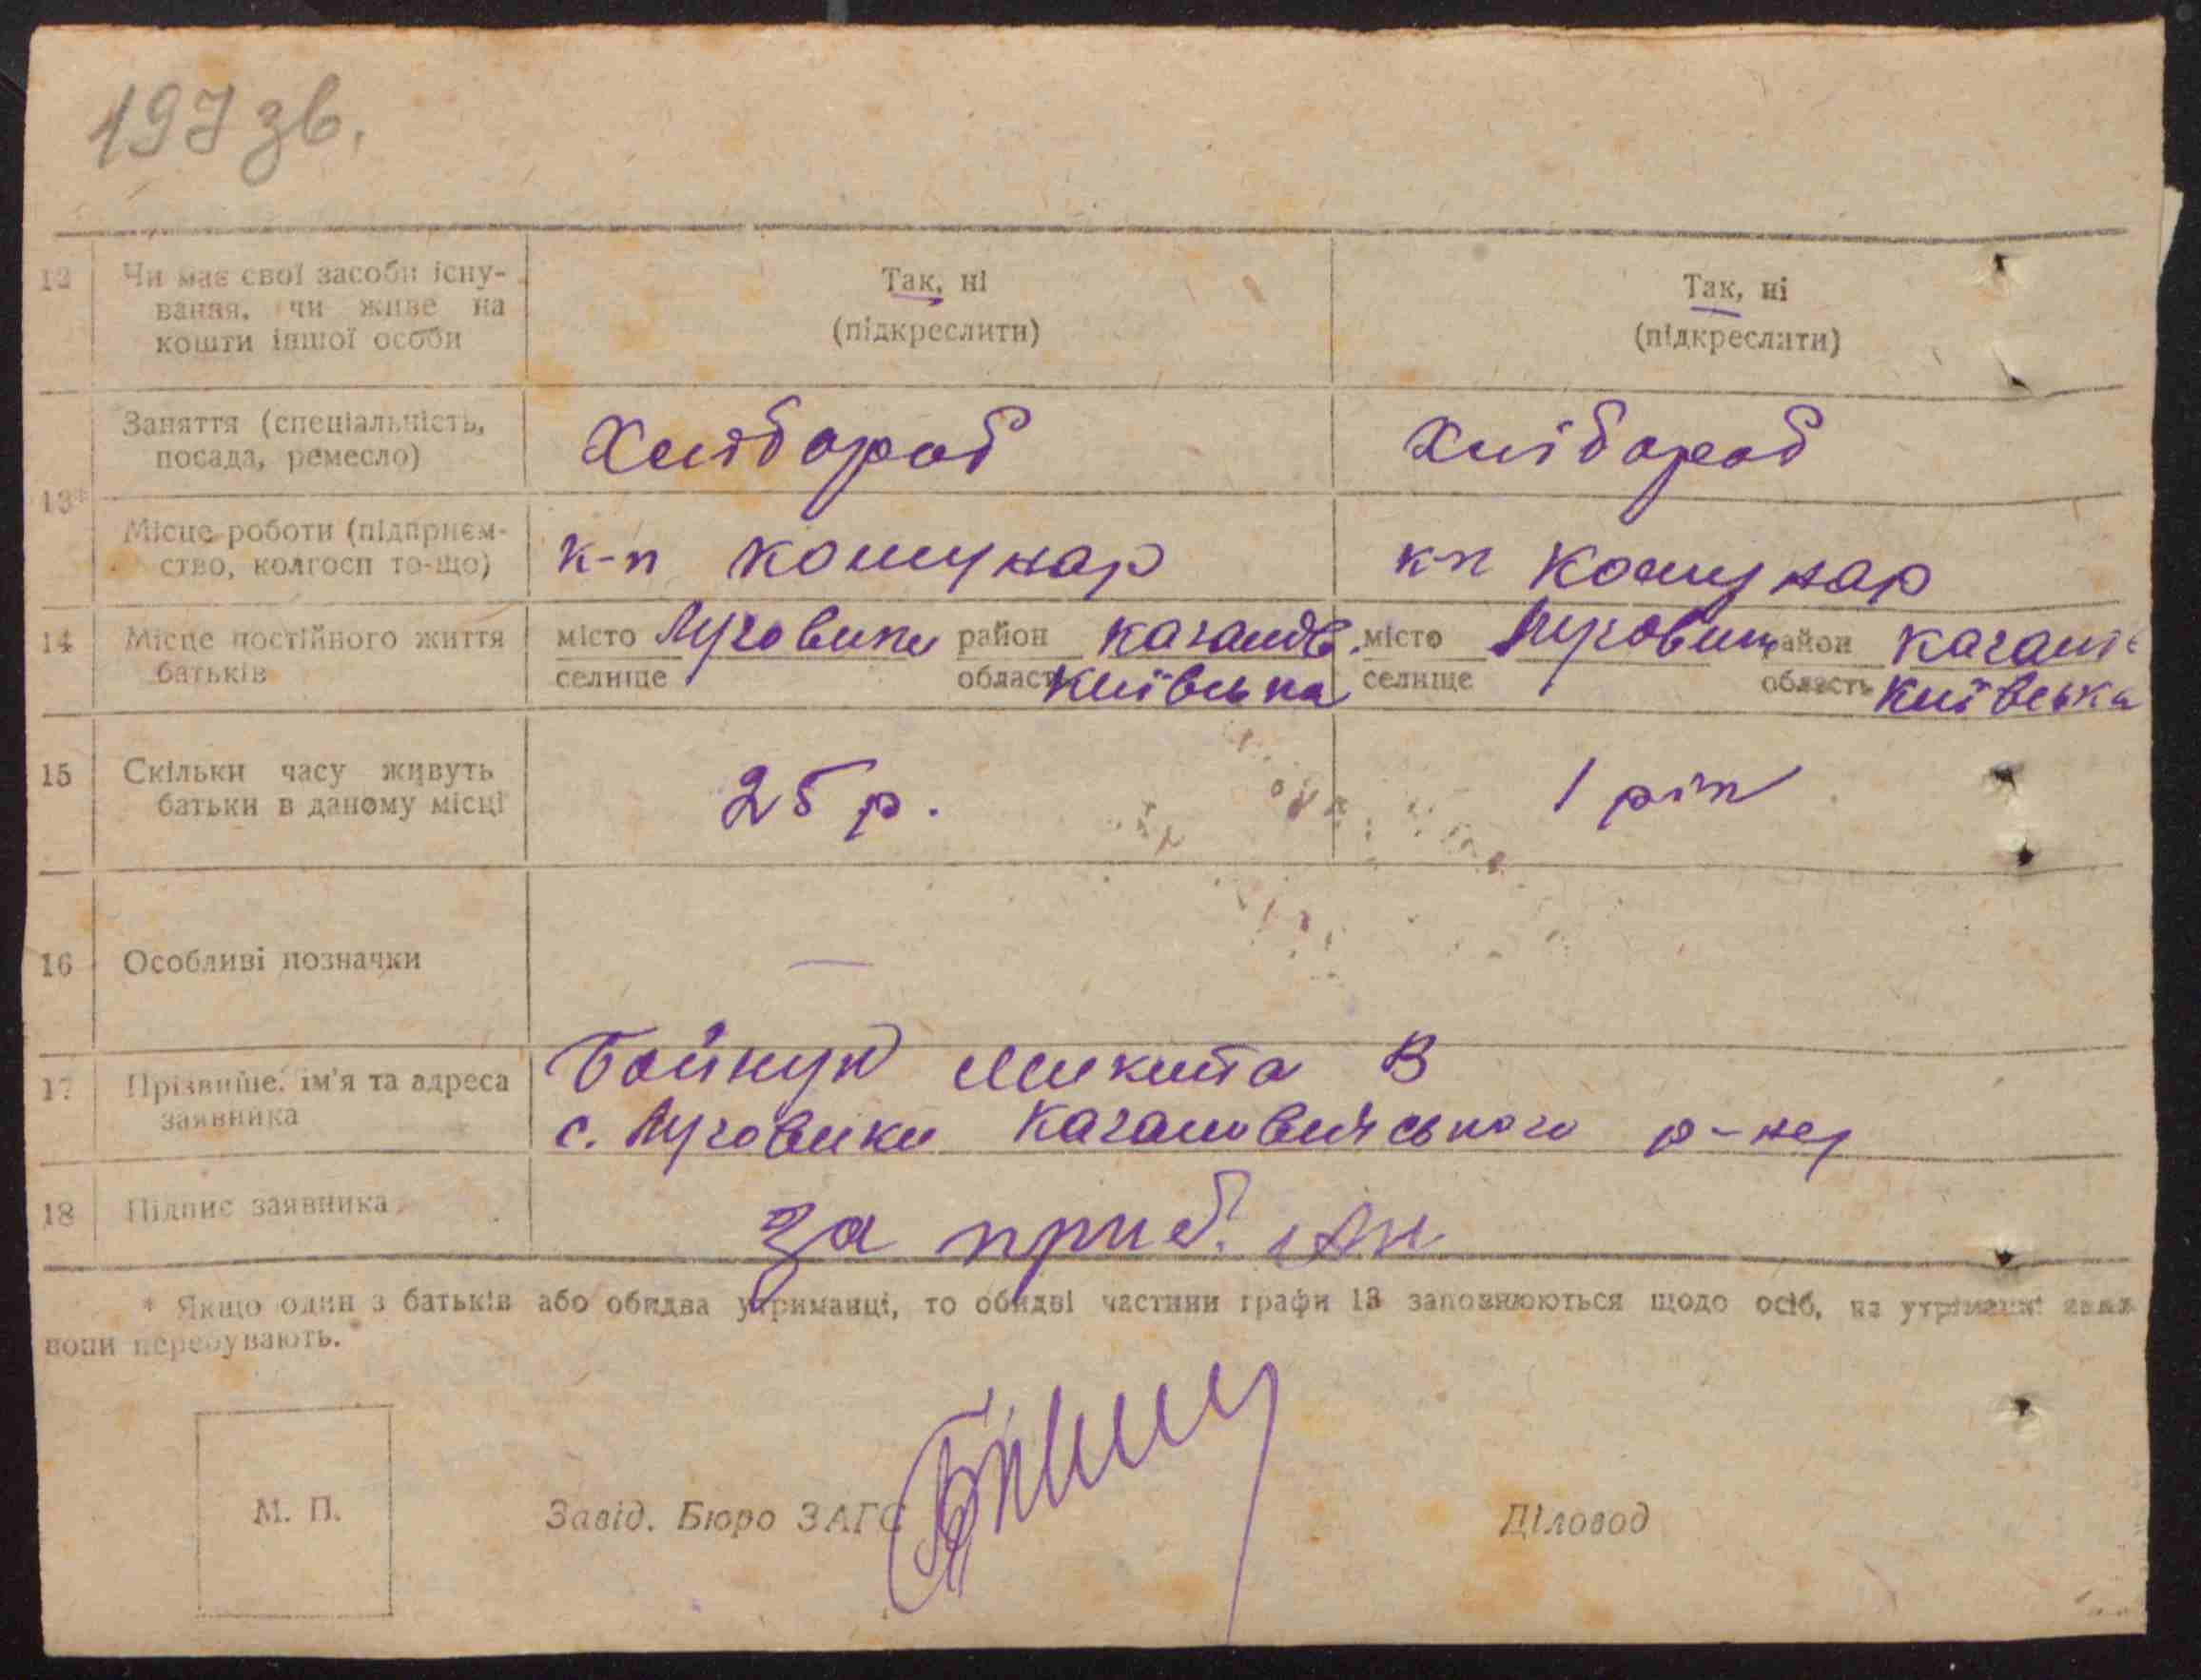 197 зв.
12 Чи має свої засоби існу- Так, ні Так, ні
вання, чи живе на (підкреслити) (підкреслити)
кошти іншої особи
Заняття (спеціальність, Хлібороб Хлібороб
посада, ремесло)
13*
Місце роботи (підприєм- к-п комунар к-п комунар
ство, колгосп то-що)
14 Місце постійного життя місто Луговики район Каганов. місто Луговики район Каганов
батьків селище область Київська селище область Київська
15 Скільки часу живуть 25 р. 1 рік
батьки в даному місці
16 Особливі позначки —
17 Прізвище, ім'я та адреса Бойчук Микита В
заявника с. Луговики Кагановичського р-ну
18 Підпис заявника За
* Якщо один з батьків або обидва утриманці, то обидві частини графи 13 заповнюються щодо осіб, на утриманні яких
вони перебувають.
М. П. Завід. Бюро ЗАГС Діловод